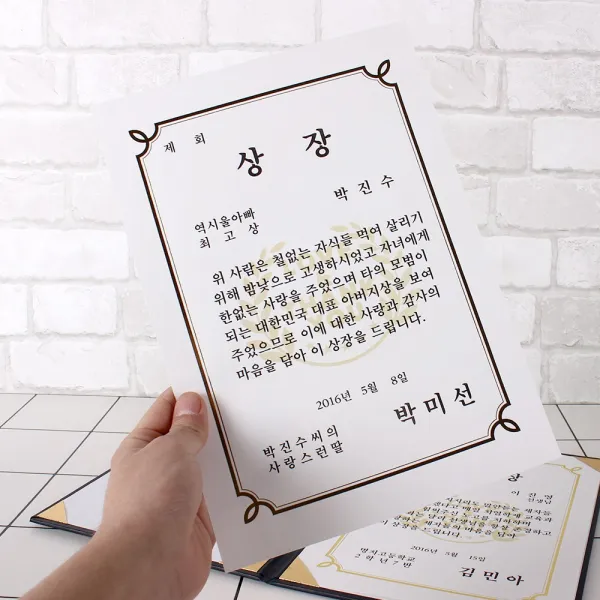 제 회
상 장
박진수
역시울아빠
최고상
위 사람은 철없는 자식들 먹여 살리기
위해 밤낮으로 고생하시었고 자녀에게
한없는 사랑을 주었으며 타의 모범이
되는 대한민국 대표 아버지상을 보여
주었으므로 이에 대한 사랑과 감사의
마음을 담아 이 상장을 드립니다.
2016년 5월 8일
박진수씨의
사랑스런딸
박미선
장
이 진 영
선생님
2016년 5월 15일
명지고등학교
2학년7반
김민아